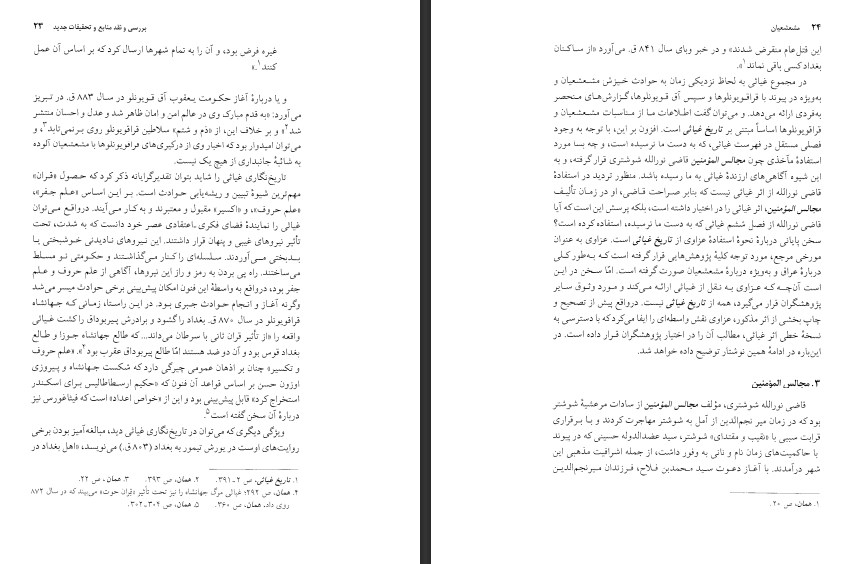 بررسی و نقد منابع و تحقیقات جدید ۲۳
غیره فرض بود، و آن را به تمام شهرها ارسال کرد که بر اساس آن عمل
کنند۱.»
و یا دربارهٔ آغاز حکومت یعقوب آق قویونلو در سال ۸۸۳ ق. در تبریز
می‌آورد: «به قدم مبارک وی در عالم امن و امان ظاهر شد و عدل و احسان منتشر
شد۲» و بر خلاف این، از «ذم و شتم» سلاطین قراقویونلو روی برنمی‌تابد۳، و
می‌توان امیدوار بود که اخبار وی از درگیری‌های قراقویونلوها با مشعشعیان آلوده
به شائبهٔ جانبداری از هیچ یک نیست.
تاریخ‌نگاری غیاثی را شاید بتوان تقدیرگرایانه ذکر کرد که حصول «قران»
مهم‌ترین شیوهٔ تبیین و ریشه‌یابی حوادث است. بر این اساس «علم جفر»،
«علم حروف»، و «اکسیر» مقبول و معتبرند و به کار می‌آیند. درواقع می‌توان
غیاثی را نمایندهٔ فضای فکری ـ اعتقادی عصر خود دانست که به شدت، تحت
تأثیر نیروهای غیبی و پنهان قرار داشتند. این نیروهای نادیدنی خوشبختی یا
بدبختی می‌آوردند. سلسله‌ای را کنار می‌گذاشتند و حکومتی نو مسلط
می‌ساختند. راه پی بردن به رمز و راز این نیروها، آگاهی از علم حروف و علم
جفر بود، درواقع به واسطهٔ این فنون امکان پیش‌بینی برخی حوادث میسر می‌شد
وگرنه آغاز و انجام حوادث جبری بود. در این راستا، زمانی که جهانشاه
قراقویونلو در سال ۸۷۰ ق. بغداد را گشود و برادرش پیربوداق را کشت غیاثی
واقعه را «از تأثیر قران ثانی با سرطان می‌داند... که طالع جهانشاه جوزا و طالع
بغداد قوس بود و آن دو ضد هستند امّا طالع پیربوداق عقرب بود۴». «علم حروف
و تکسیر» چنان بر اذهان عمومی چیرگی دارد که شکست جهانشاه و پیروزی
اوزون حسن بر اساس قواعد آن فنون که «حکیم ارسطاطالیس برای اسکندر
استخراج کرد» قابل پیش‌بینی بود و این از «خواص اعداد» است که فیثاغورس نیز
دربارهٔ آن سخن گفته است۵.
ویژگی دیگری که می‌توان در تاریخ‌نگاری غیاثی دید، مبالغه‌آمیز بودن برخی
روایت‌های اوست در یورش تیمور به بغداد (۸۰۳ ق.) می‌نویسد، «اهل بغداد در
۱. تاریخ غیاثی، ص ۲-۳۹۱. ۲. همان، ص ۳۹۳. ۳. همان، ص ۲۲.
۴. همان، ص ۲۹۲؛ غیاثی مرگ جهانشاه را نیز تحت تأثیر «قِران حوت» می‌بیند که در سال ۸۷۲
روی داد، همان، ص ۳۶۰. ۵. همان، ص ۳۰۴-۳۰۲.
۲۴ مشعشعیان
این قتل‌عام منقرض شدند» و در خبر وبای سال ۸۴۱ ق. می‌آورد «از ساکنان
بغداد کسی باقی نماند۱».
در مجموع غیاثی به لحاظ نزدیکی زمان به حوادث خیزش مشعشعیان و
به‌ویژه در پیوند با قراقویونلوها و سپس آق قویونلوها، گزارش‌های منحصر
به‌فردی ارائه می‌دهد. و می‌توان گفت اطلاعات ما از مناسبات مشعشعیان و
قراقویونلوها اساساً مبتنی بر تاریخ غیاثی است. افزون بر این، با توجه به وجود
فصلی مستقل در فهرست غیاثی، که به دست ما نرسیده است، و چه بسا مورد
استفادهٔ مآخذی چون مجالس المؤمنین قاضی نورالله شوشتری قرار گرفته، و به
این شیوه آگاهی‌های ارزندهٔ غیاثی به ما رسیده باشد. منظور تردید در استفادهٔ
قاضی نورالله از اثر غیاثی نیست که بنابر صراحت قاضی، او در زمان تألیف
مجالس المؤمنین، اثر غیاثی را در اختیار داشته است، بلکه پرسش این است که آیا
قاضی نورالله از فصل ششم غیاثی که به دست ما نرسیده، استفاده کرده است؟
سخن پایانی دربارهٔ نحوهٔ استفادهٔ عزاوی از تاریخ غیاثی است. عزاوی به عنوان
مورخی مرجع، مورد توجه کلیهٔ پژوهش‌هایی قرار گرفته است که به‌طور کلی
دربارهٔ عراق و به‌ویژه دربارهٔ مشعشعیان صورت گرفته است. امّا سخن در این
است آن‌چه که عزاوی به نقل از غیاثی ارائه می‌کند و مورد وثوق سایر
پژوهشگران قرار می‌گیرد، همه از تاریخ غیاثی نیست. درواقع پیش از تصحیح و
چاپ بخشی از اثر مذکور، عزاوی نقش واسطه‌ای را ایفا می‌کرد که با دسترسی به
نسخهٔ خطی اثر غیاثی، مطالب آن را در اختیار پژوهشگران قرار داده است. در
این‌باره در ادامهٔ همین نوشتار توضیح داده خواهد شد.
۳. مجالس المؤمنین
قاضی نورالله شوشتری، مؤلف مجالس المؤمنین از سادات مرعشیهٔ شوشتر
بود که در زمان میر نجم‌الدین از آمل به شوشتر مهاجرت کردند و با برقراری
قرابت سببی با «نقیب و مقتدای» شوشتر، سید عضدالدوله حسینی که در پیوند
با حاکمیت‌های زمان نام و نانی به وفور داشت، از جمله اشرافیت مذهبی این
شهر درآمدند. با آغاز دعوت سید محمدبن فلاح، فرزندان میرنجم‌الدین
۱. همان، ص ۲۰.